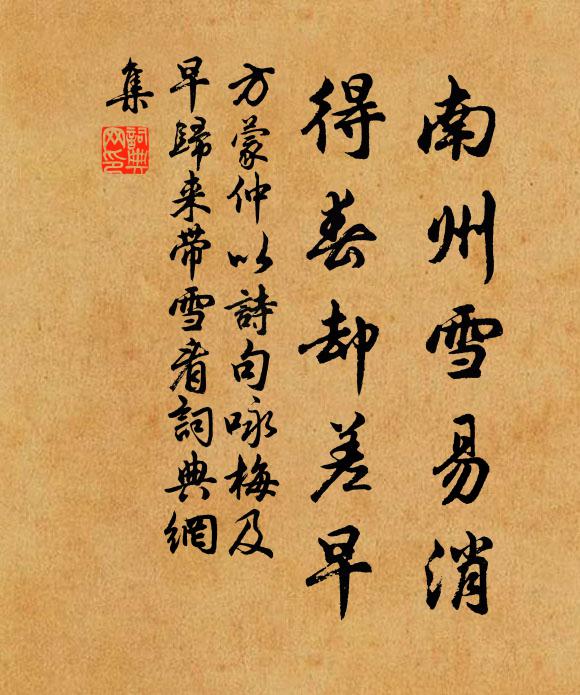 南州雪易消
得春却差早
方蒙仲以詩句咏梅及
早歸来带雪看詞典網
集
詞典網印